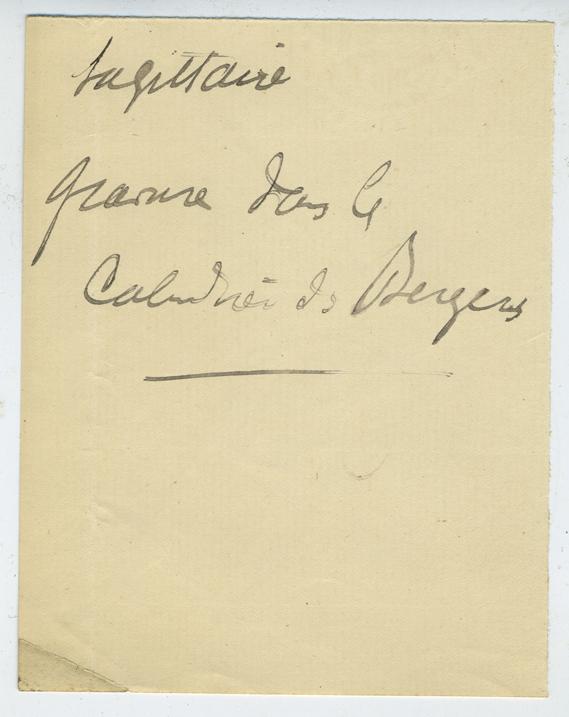 Sagittaire
gravure dans le
Calendrier des Bergers